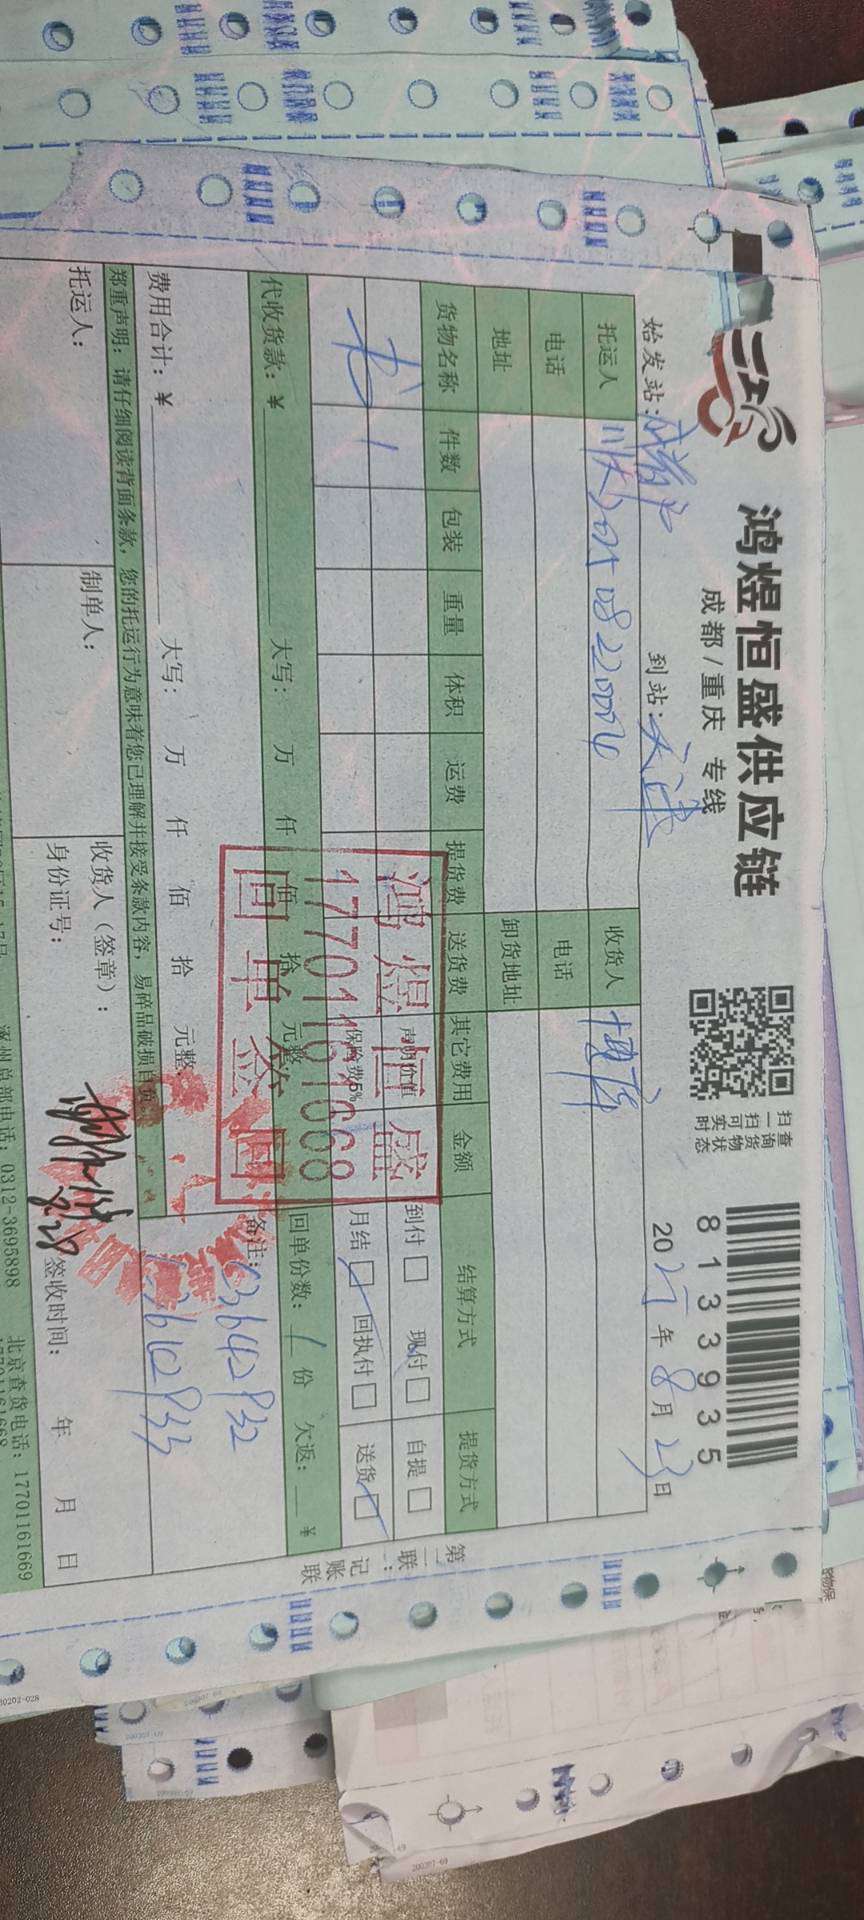 鸿煜恒盛供应链
成都/重庆 专线
扫一扫可实时
查询货物状态
8133935
始发站:
到站:天津
2025年8月23日
托运人 川庆202508220004 收货人 博库
电话 电话
地址 卸货地址
货物名称 件数 包装 重量 体积 运费 提货费 送货费 其它费用 金额 结算方式 提货方式
书 1 声明价值 到付□ 现付□ 自提□
保险费5‰ 月结□ 回执付□ 送货□
代收货款:¥ 大写: 万 仟 佰 拾 元整 回单份数:1份 欠返:__¥
费用合计:¥ 大写: 万 仟 佰 拾 元整 备注:
郑重声明:请仔细阅读背面条款,您的托运行为意味着您已理解并接受条款内容,易碎品破损自
托运人: 制单人: 收货人(签章):
身份证号: 签收时间: 年 月 日
8.28
涿州总部电话:0312-3695898 北京查货电话:17701161669
17701161668
鸿煜恒盛
17701161668
回单签回
第二联:记账联